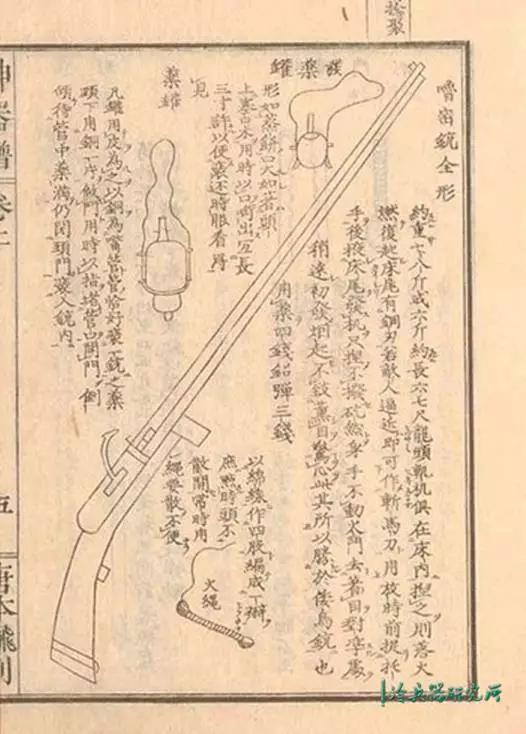 嚕密銃全形
約重七八斤或六斤約長六七尺龍頭軌机俱在床內捏之則落火
燃復起床尾有鋼刃若敵人逼近即可作斬馬刀用放時前捉托
手後掖床尾發机只捏不撥砣然身手不動火門去着目對準處
稍遠初發烟起不致薰目驚心此其所以勝於倭鳥銃也
用藥四錢鉛彈三錢
發藥罐
形如蒸餅口大如若顯
上塞口木用時以口啣出宜長
三寸許以便裝迄時眼看得
見
藥罐
凡罐用皮為之以銅為嘴管恰好裝一銃之藥
頭下用銅一片做門用時以指堵管口開門倒
傾待管中藥滿仍閉頭門裝入銃內
以綿綫作四股編成一辮
庶燃時頭不
散開常時用
繩要散不便
火繩
神器譜
五
唐本翻刻
冷兵器研究所